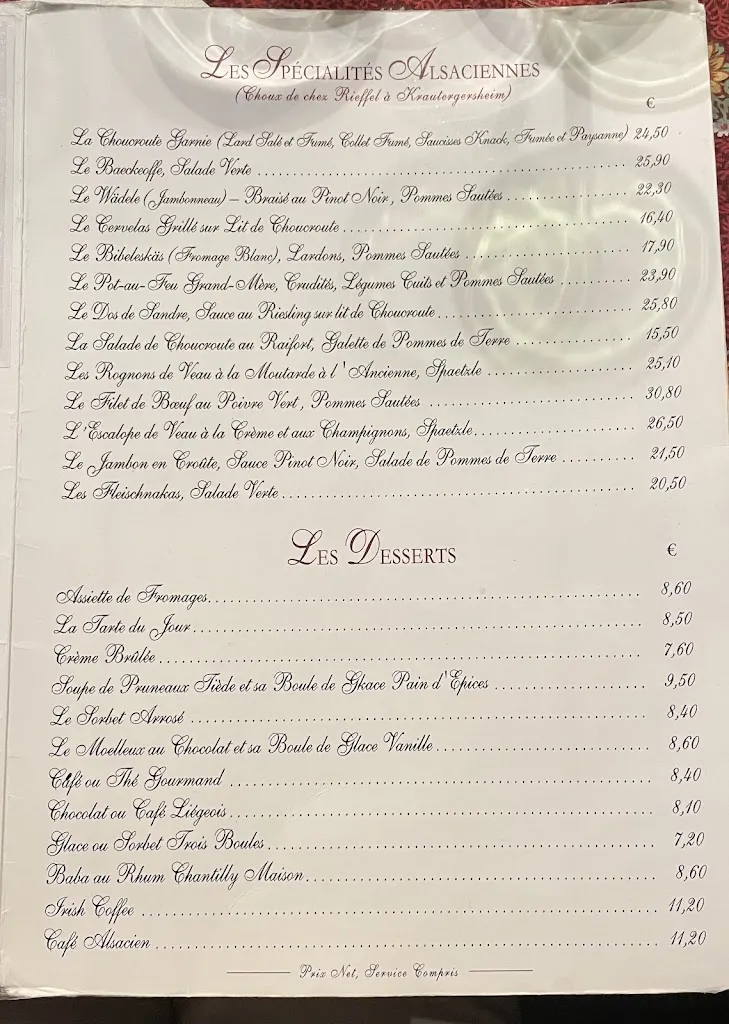 Les Spécialités Alsaciennes
(Choux de chez Rieffel à Krautergersheim)
€
La Choucroute Garnie (Lard Salé et Fumé, Collet Fumé, Saucisses Knack, Fumée et Paysanne) 24,50
Le Baeckeoffe, Salade Verte 25,90
Le Wädele (Jambonneau) – Braisé au Pinot Noir, Pommes Sautées 22,30
Le Cervelas Grillé sur Lit de Choucroute 16,40
Le Bibeleskäs (Fromage Blanc), Lardons, Pommes Sautées 17,90
Le Pot-au-Feu Grand-Mère, Crudités, Légumes Cuits et Pommes Sautées 23,90
Le Dos de Sandre, Sauce au Riesling sur lit de Choucroute 25,80
La Salade de Choucroute au Raifort, Galette de Pommes de Terre 15,50
Les Rognons de Veau à la Moutarde à l'Ancienne, Spaetzle 25,10
Le Filet de Bœuf au Poivre Vert, Pommes Sautées 30,80
L'Escalope de Veau à la Crème et aux Champignons, Spaetzle 26,50
Le Jambon en Croûte, Sauce Pinot Noir, Salade de Pommes de Terre 21,50
Les Fleischnakas, Salade Verte 20,50
Les Desserts
€
Assiette de Fromages 8,60
La Tarte du Jour 8,50
Crème Brûlée 7,60
Soupe de Pruneaux Tiède et sa Boule de Gkace Pain d'Epices 9,50
Le Sorbet Arrosé 8,40
Le Moelleux au Chocolat et sa Boule de Glace Vanille 8,60
Café ou Thé Gourmand 8,40
Chocolat ou Café Liégeois 8,10
Glace ou Sorbet Trois Boules 7,20
Baba au Rhum Chantilly Maison 8,60
Irish Coffee 11,20
Café Alsacien 11,20
Prix Net, Service Compris